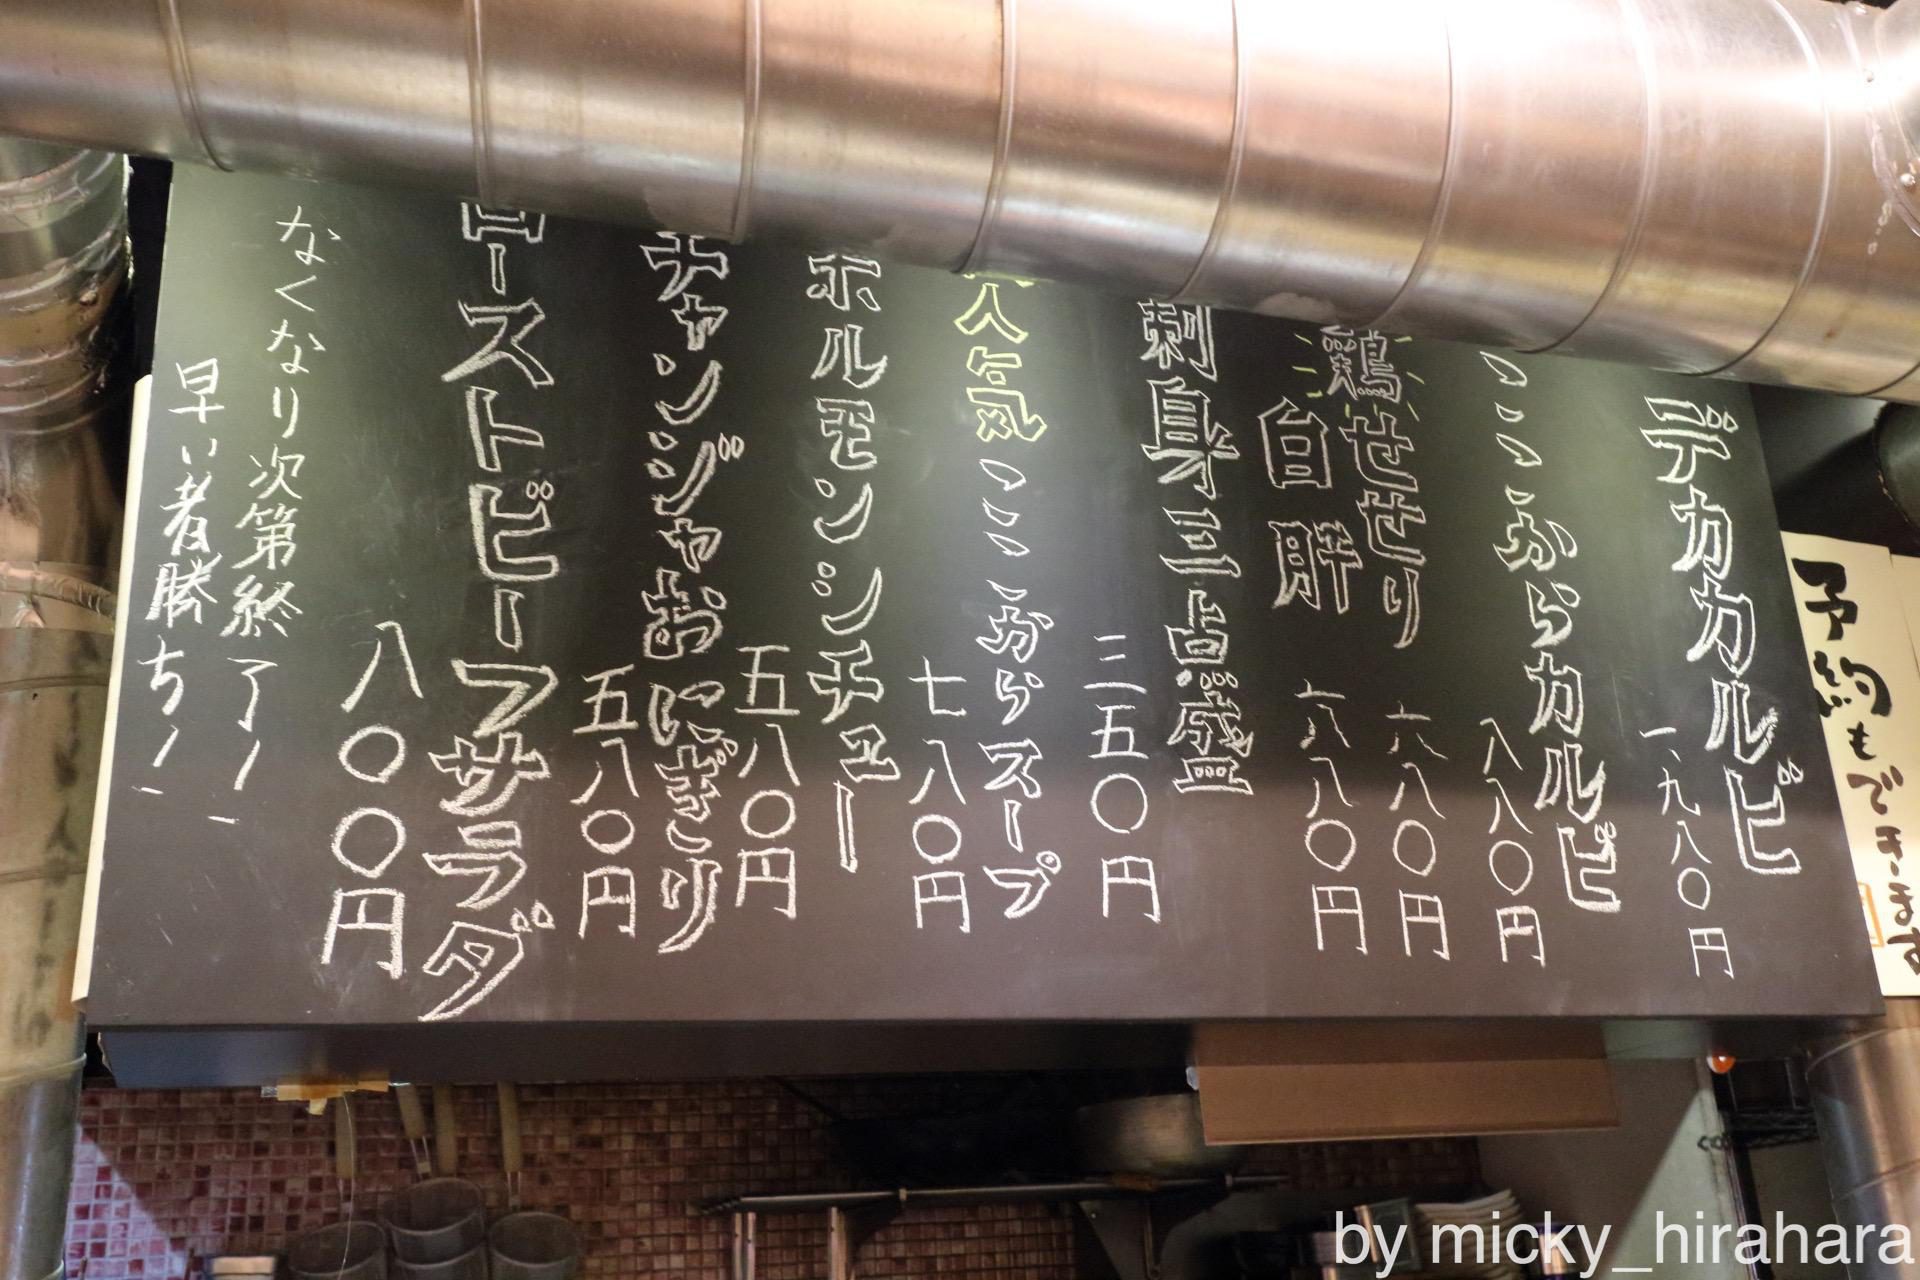 デカカルビ
一、九八〇円
こころからカルビ
八八〇円
鶏せせり
六八〇円
白肝
六八〇円
刺身三点盛
三五〇円
人気
こころからスープ
七八〇円
ホルモンシチュー
五八〇円
チャンジャおにぎり
五八〇円
ローストビーフサラダ
八〇〇円
なくなり次第終了!
早い者勝ち!
予約もできます
by micky_hirahara